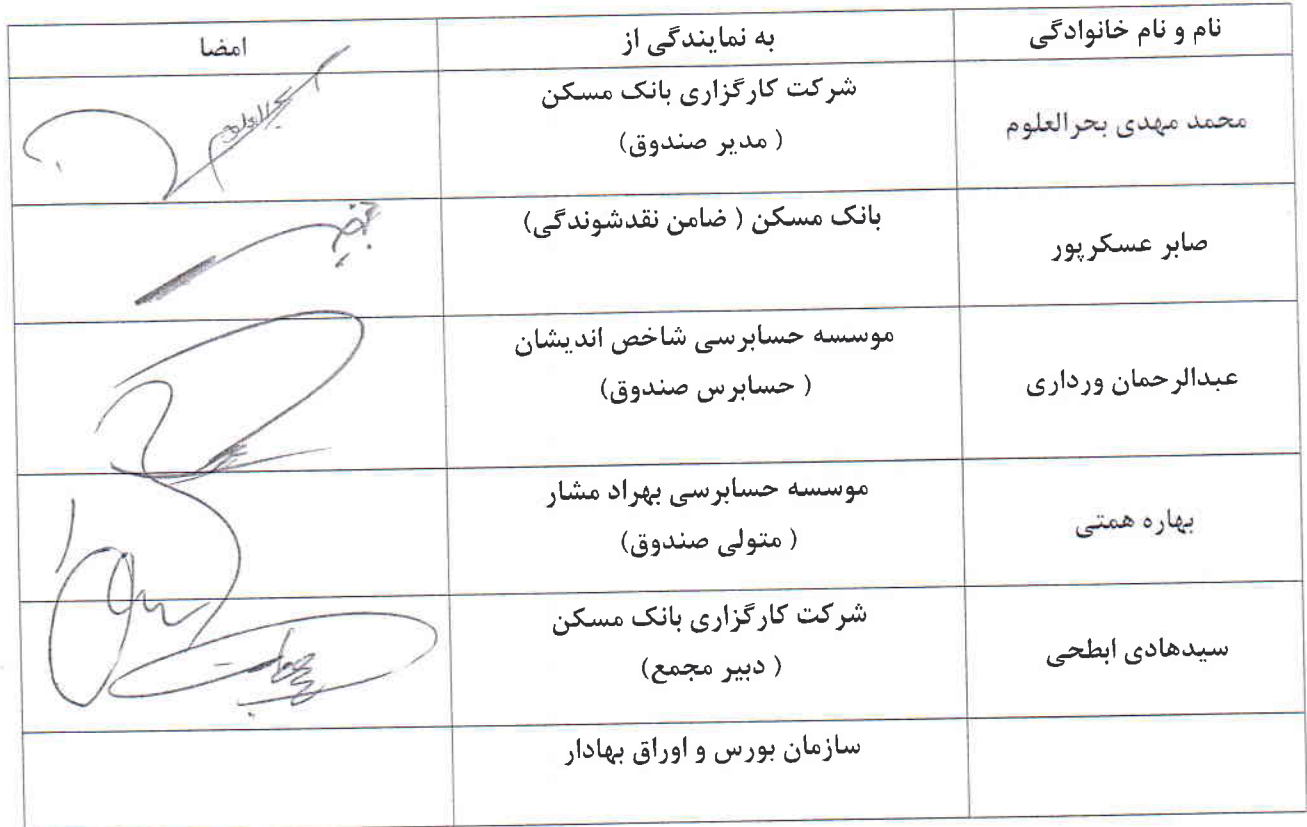 نام و نام خانوادگی
به نمایندگی از
امضا
محمد مهدی بحرالعلوم
شرکت کارگزاری بانک مسکن
( مدیر صندوق)
بحرالعلوم
صابر عسکرپور
بانک مسکن ( ضامن نقدشوندگی)
عبدالرحمان ورداری
موسسه حسابرسی شاخص اندیشان
( حسابرس صندوق)
بهاره همتی
موسسه حسابرسی بهراد مشار
( متولی صندوق)
سیدهادی ابطحی
شرکت کارگزاری بانک مسکن
( دبیر مجمع)
سازمان بورس و اوراق بهادار